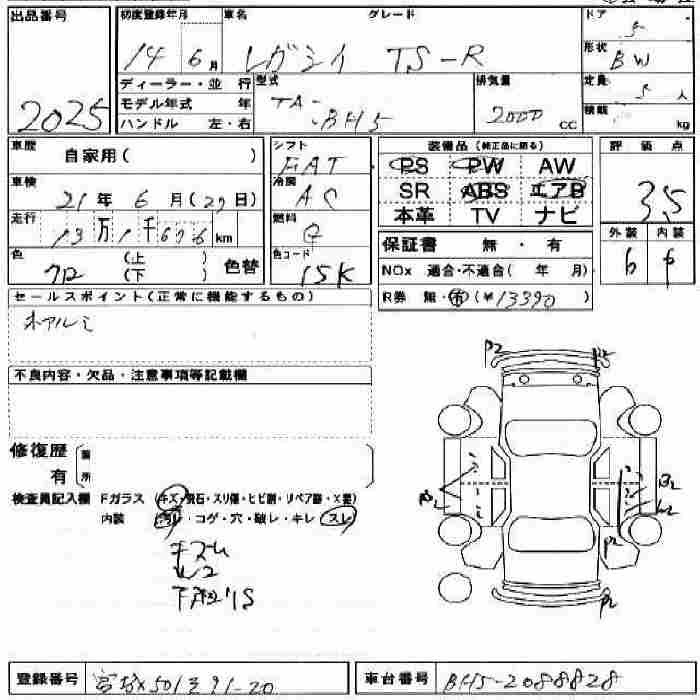 出品番号 2025
初度登録年月 14年 6月
車名 レガシイ グレード TS-R
ドア 5
形状 BW
定員 5人
積載 kg
ディーラー・並行
モデル年式 年
ハンドル 左・右
型式 TA-BH5
排気量 2000 CC
車歴 自家用( )
シフト FAT
車検 21年 6月(29日)
冷房 AC
走行 13万1千676km
燃料 G
色 クロ (上) (下) 色替
色コード 15K
装備品(純正品に限る)
PS PW AW
SR ABS エアB
本革 TV ナビ
評価点 3.5
外装 6 内装
保証書 無・有
NOx 適合・不適合( 年 月)
R券 無・有(¥13390)
セールスポイント(正常に機能するもの)
アルミ
不良内容・欠品・注意事項等記載欄
修復歴 有 箇所
検査員記入欄 Fガラス (キズ・飛石・スリ傷・ヒビ割・リペア跡・X要)
内装 ・コゲ・穴・破レ・キレ・スレ
キズ
下 S
P2
B2
登録番号 501 91-20
車台番号 BH5-2088828